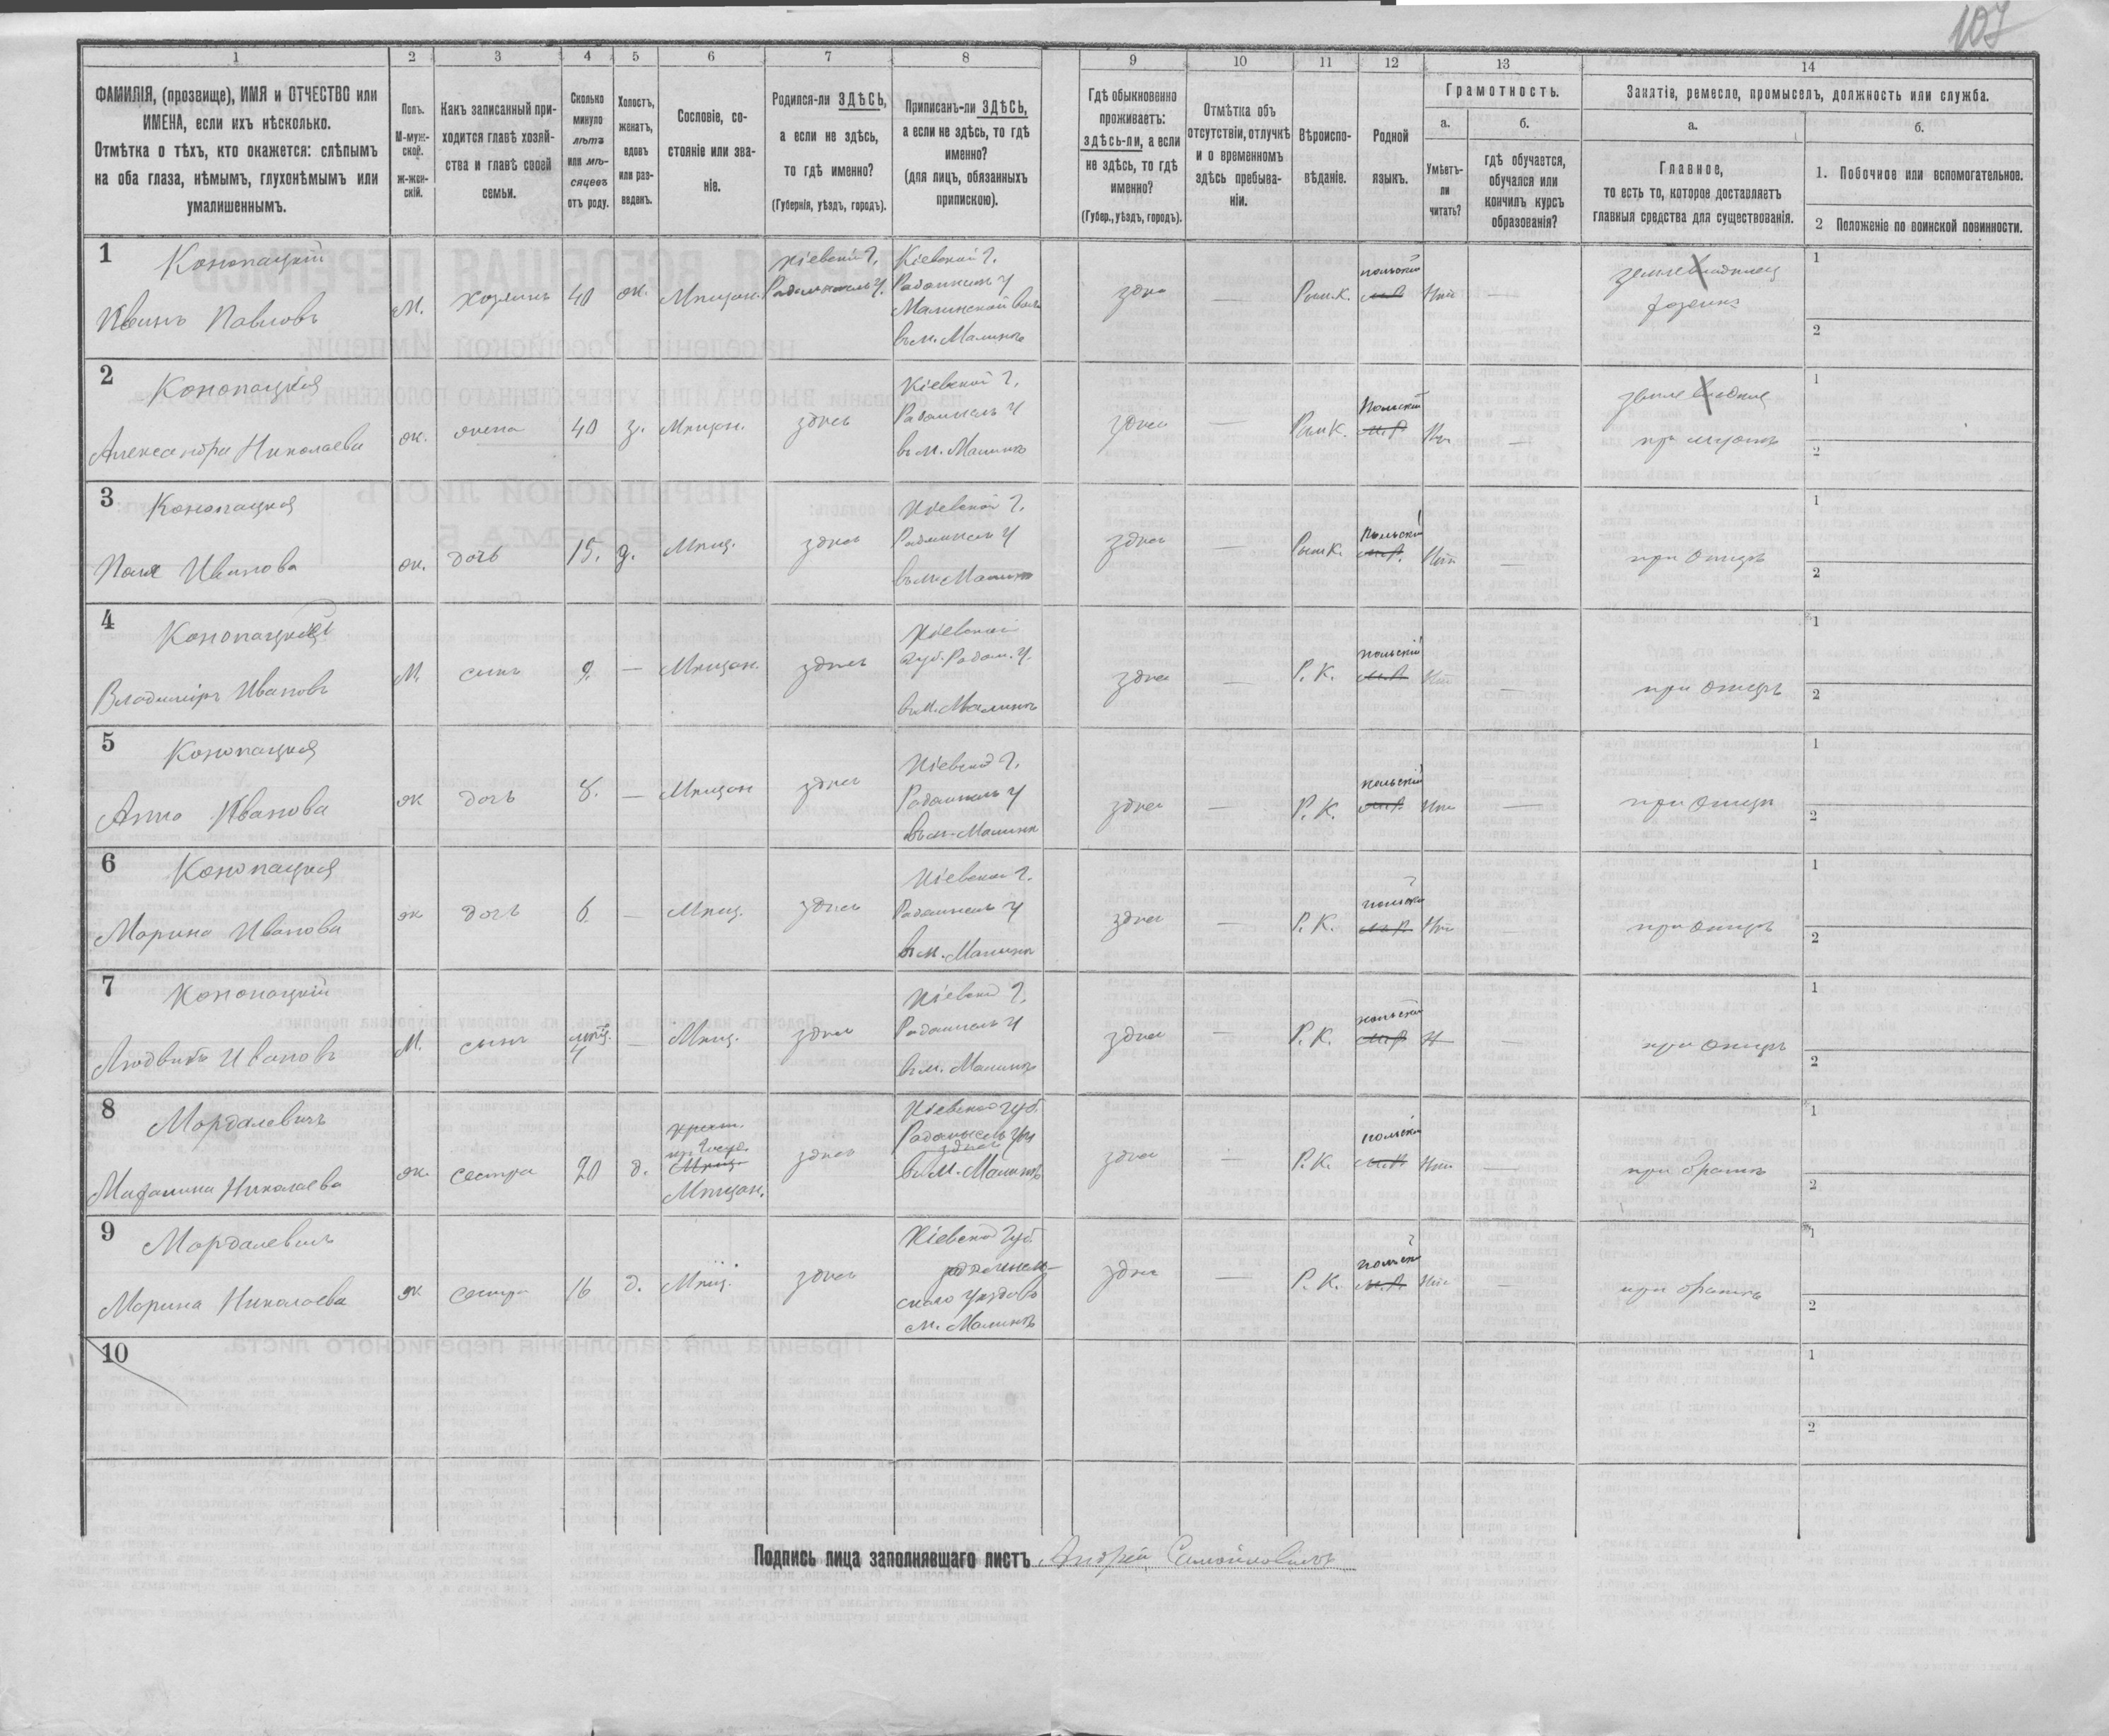 107
1 2 3 4 5 6 7 8 9 10 11 12 13 14
ФАМИЛІЯ, (прозвище), ИМЯ и ОТЧЕСТВО или
ИМЕНА, если ихъ нѣсколько.
Отмѣтка о тѣхъ, кто окажется: слѣпымъ
на оба глаза, нѣмымъ, глухонѣмымъ или
умалишеннымъ.
Полъ.
М-муж-
ской.
ж-жен-
скій.
Какъ записанный при-
ходится главѣ хозяй-
ства и главѣ своей
семьи.
Сколько
минуло
лѣтъ
или мѣ-
сяцевъ
отъ роду.
Холостъ,
женатъ,
вдовъ
или раз-
веденъ.
Сословіе, со-
стояніе или зва-
ніе.
Родился-ли ЗДѢСЬ,
а если не здѣсь,
то гдѣ именно?
(Губернія, уѣздъ, городъ).
Приписанъ-ли ЗДѢСЬ,
а если не здѣсь, то гдѣ
именно?
(для лицъ, обязанныхъ
припискою).
Гдѣ обыкновенно
проживаетъ:
ЗДѢСЬ-ЛИ, а если
не здѣсь, то гдѣ
именно?
(Губер., уѣздъ, городъ).
Отмѣтка объ
отсутствіи, отлучкѣ
и о временномъ
здѣсь пребыва-
ніи.
Вѣроиспо-
вѣданіе.
Родной
языкъ.
Грамотность.
а.
Умѣетъ-
ли
читать?
б.
гдѣ обучается,
обучался или
кончилъ курсъ
образованія?
Занятіе, ремесло, промыселъ, должность или служба.
а.
Главное,
то есть то, которое доставляетъ
главныя средства для существованія.
б.
1. Побочное или вспомогательное.
2 Положеніе по воинской повинности.
1 Конопацкій
Иванъ Павловъ
М. хозяинъ 40 ж. Мѣщан.
Кіевской г.
Радомысль у.
Кіевской г.
Радомысль у
Малинской вол
въ м. Малинъ
здѣс — Рим.К. польскій Нѣт —
1
2
2 Конопацкая
Александра Николаева
ж. жена 40 з. Мѣщан. здѣсь
Кіевской г.
Радомысль у
въ м. Малинъ
здѣсь — Рим К. Польскій —
при мужѣ
1
2
3 Конопацкая
Поля Иванова
ж. дочь 15. д. Мѣщ. здѣсь
Кіевской г.
Радомысль у
въ м. Малинъ
здѣсь — Рим К. Польскій Нѣт —
при отцѣ
1
2
4 Конопацкій
Владиміръ Ивановъ
М. сынъ 9. — Мѣщан. здѣсь
Кіевской
губ. Радом. у.
въ м. Малинъ
здѣсь — Р. К. польскій Нѣт —
при отцѣ
1
2
5 Конопацкая
Анна Иванова
ж дочь 8. — Мѣщан здѣсь
Кіевской г.
Радомысль у
въ м. Малинъ
здѣсь — Р. К. польскій Нѣт —
при отцѣ
1
2
6 Конопацкая
Марина Иванова
ж дочь 6 — Мѣщ. здѣсь
Кіевской г.
Радомысль у
въ м. Малинъ
здѣсь — Р. К. польскій Нѣт —
при отцѣ
1
2
7 Конопацкій
Людвикъ Ивановъ
М. сынъ — Мѣщ. здѣсь
Кіевской г.
Радомысль у
въ м. Малинъ
здѣсь — Р. К. польскій Н —
при отцѣ
1
2
8 Мордалевичъ
Николаева
ж. сестра 20 д.
Мѣщ.
Мѣщан.
здѣсь
Кіевской губ.
Радомысль у
здѣсь
въ м. Малинъ
здѣсь — Р. К. польскій Нѣт —
при братѣ
1
2
9 Мордалевичъ
Марина Николаева
ж сестра 16 д. Мѣщ. здѣсь
Кіевской губ.
радомысль-
скаго
м. Малинъ
здѣсь — Р. К. польскій Нѣт —
при братѣ
1
2
10
1
2
Подпись лица заполнявшаго листъ Андрей Самойловичъ